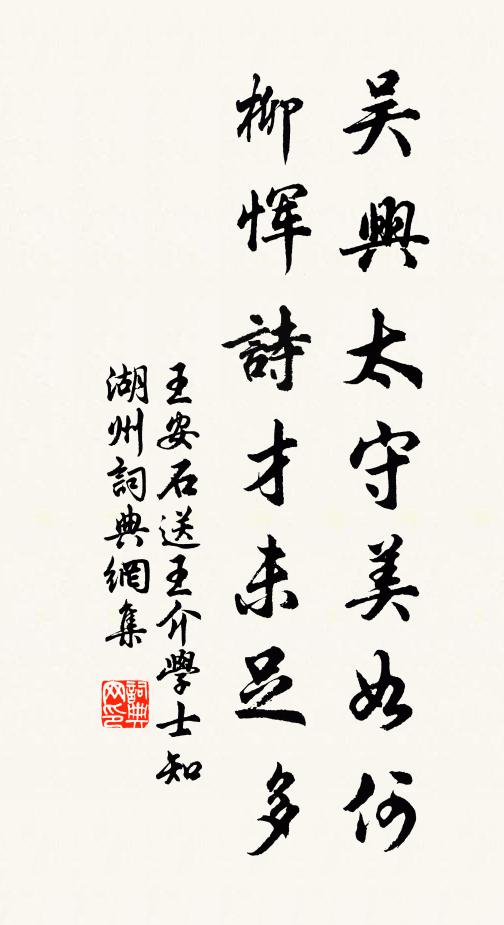 吴興太守美如何
柳恽詩才未足多
王安石送王介學士知
湖州詞典網集
詞典网印